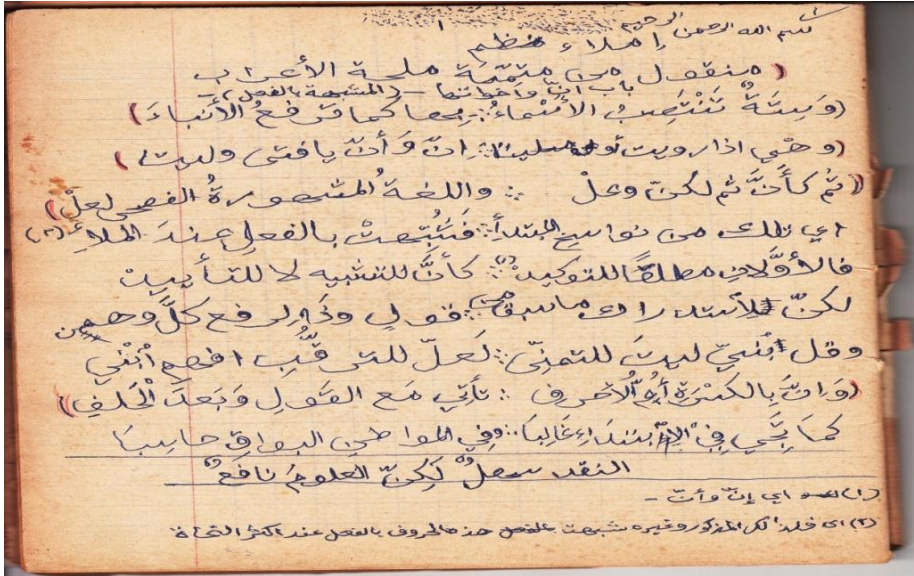 بسم الله الرحمن الرحيم
إملاء منظم
(منقول من متممة ملحة الأعراب
باب انّ وأخواتها - (المشبهة بالفعل) -
(وَسِتَةٌ تَنْتَصِبُ الأسْماءُ ∴ بها كما ترتفعُ الأنباءَ)
(وهْي اذا رويت أو ∴ إنّ وَأنّ يا فتى وليتا)
(ثمُ كأنَّ ثم لكنّ وعلْ ∴ واللغةُ المشهورةُ الفصحى لعلْ)
اي تلك من نواسخ المبتدأ ∴ فشُبّهتْ بالفعلِ عندَ الملاءِ (٢)
فالأوَّلانِ مطلقاً للتوكيد (١) ∴ كأنَّ للتشبيه لا للتأبيد
لكنّ للاستدراك ما سبق من ∴ قولٍ وذَا لرفع كلَّ وهم
وقل ليتَ للتمنّي ∴ لعلّ للترقُّبِ افهم
(وَإنَّ بِالكَسْرَةِ أمُّ الأحرفِ ∴ تأتي مَع القَولِ وَبَعدَ الْحَلفِ)
كما تجي في الابتداءِ غالباً ∴ وفي المواطن البواقي حاسبا
النقد سهلٌ لكنّ العلومَ نافعٌ
(١) اي إنّ وأنّ -
(٢) اى فلذالكر المذكور وغيره شبهت هذه الحروف بالفعل عند اكثر النحاة